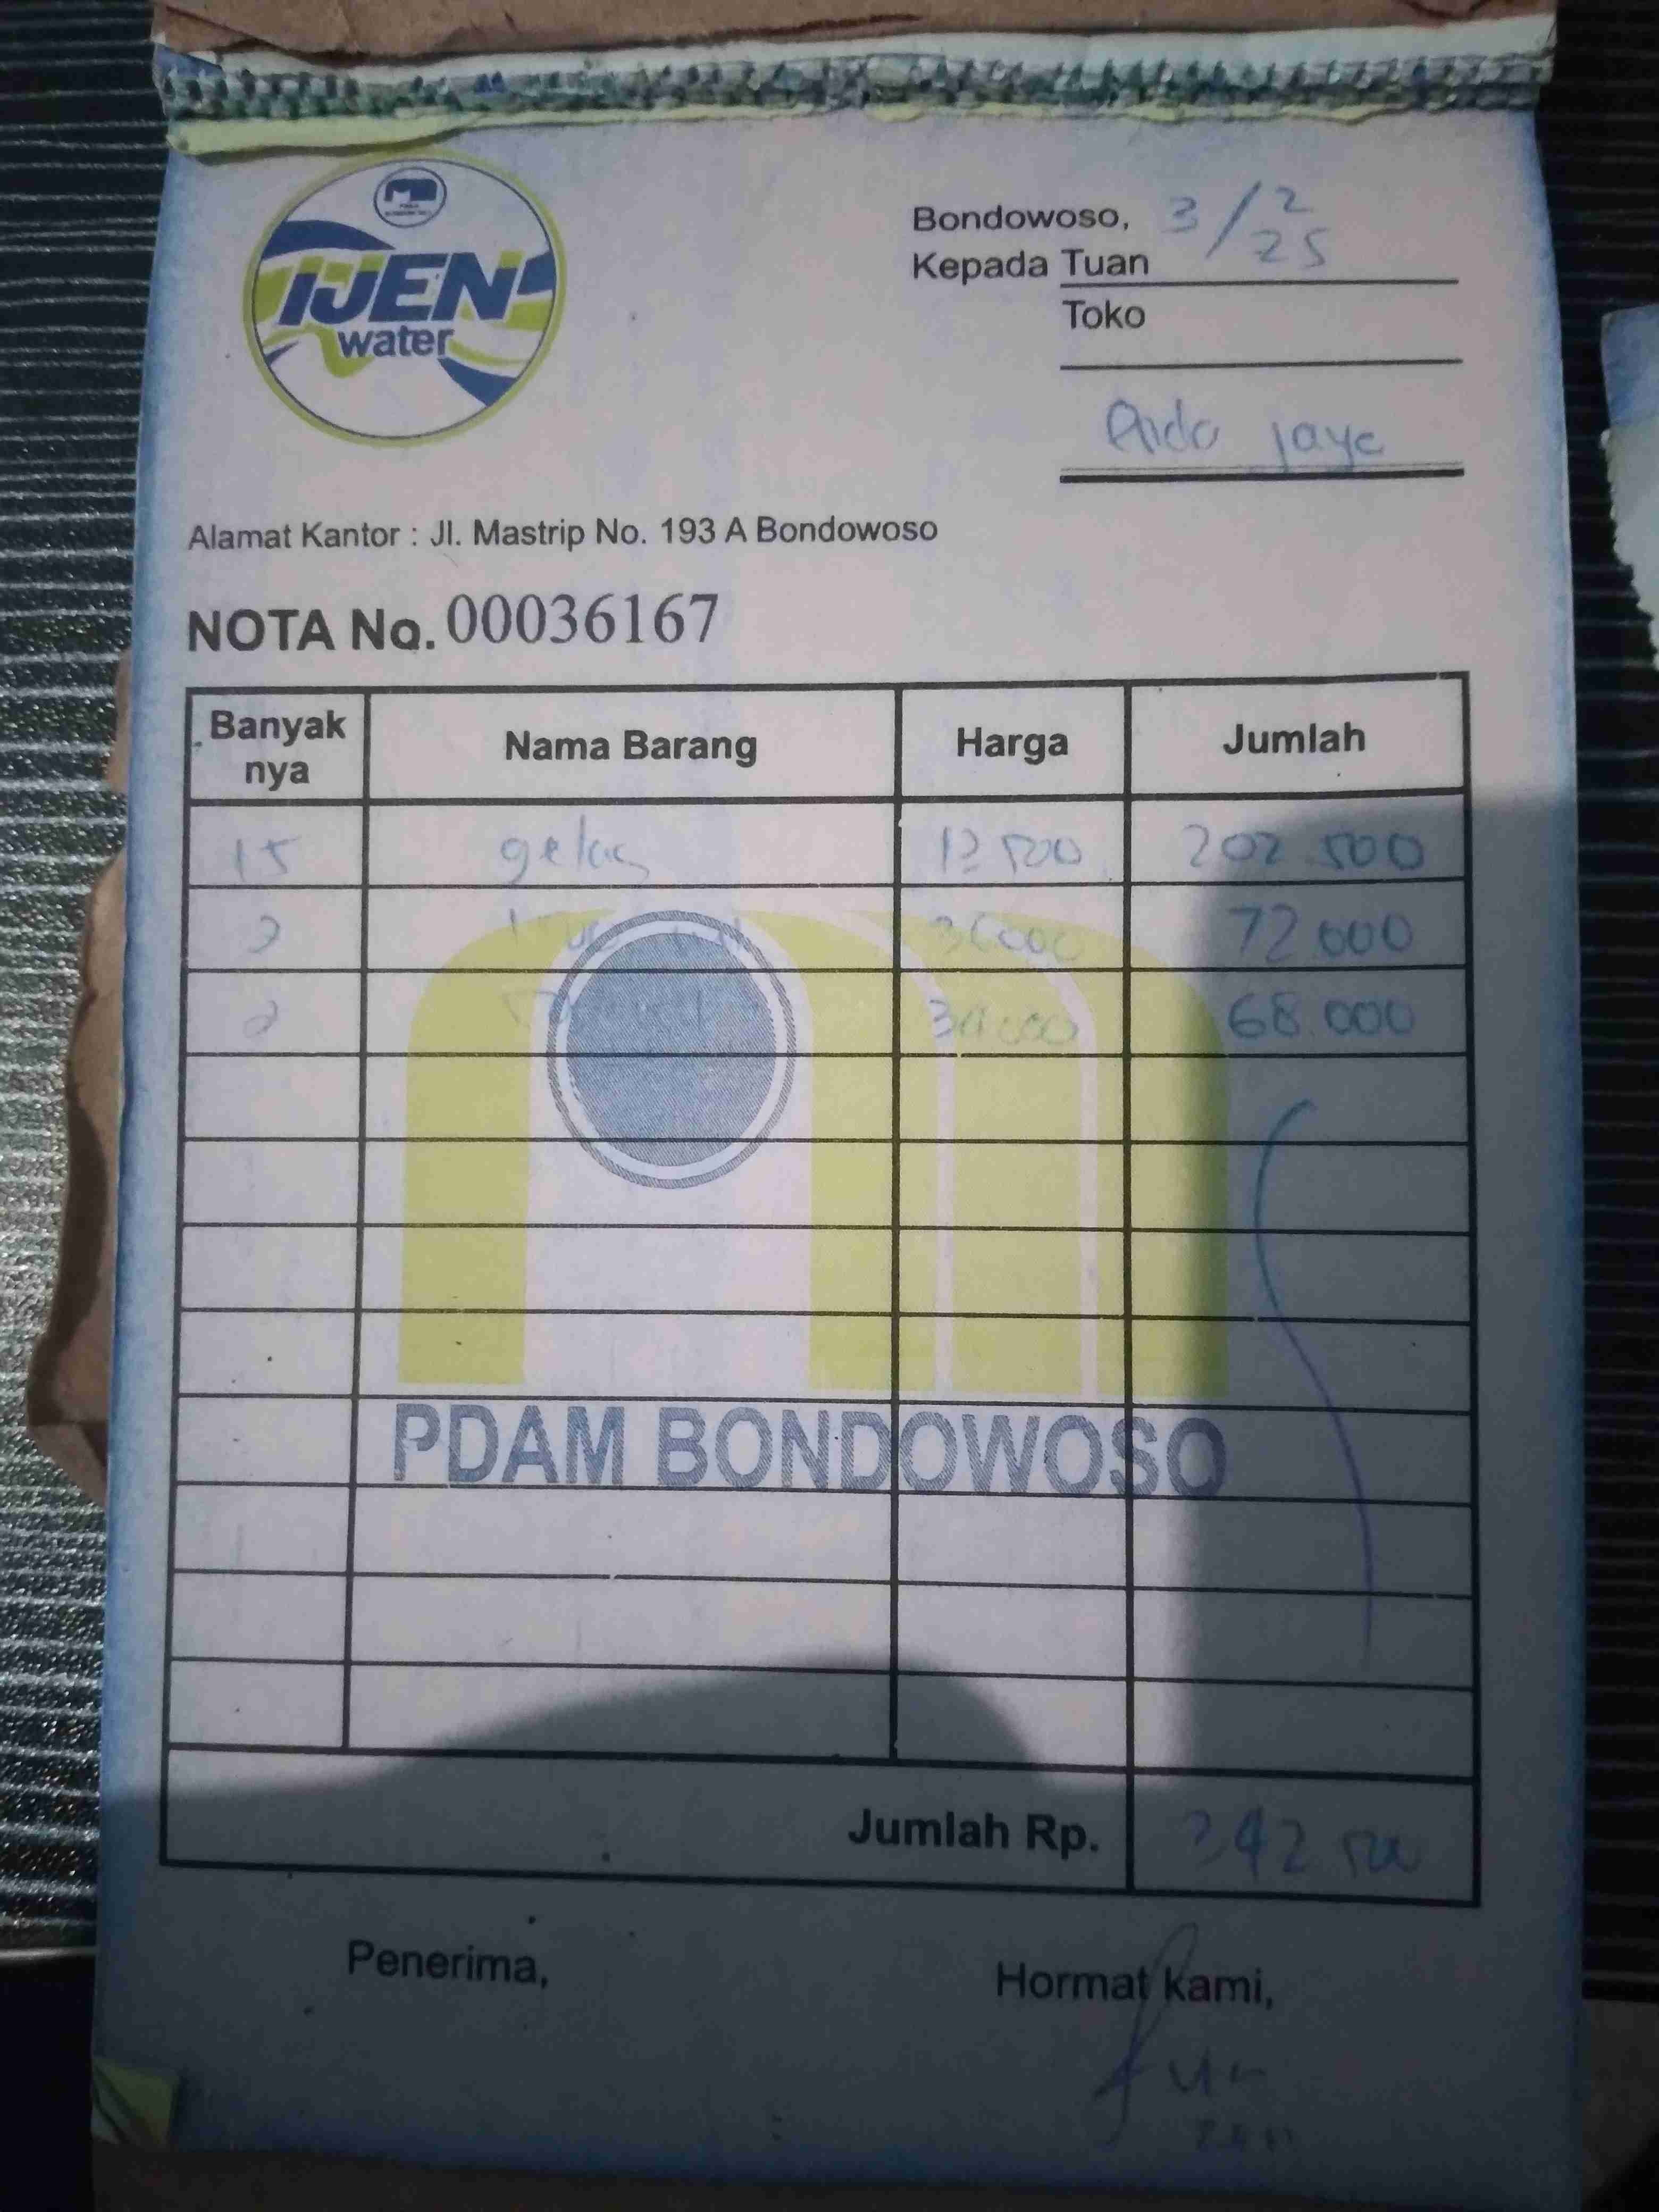 IJEN
water
Bondowoso, 3/2 25
Kepada Tuan
Toko
Aido jaya
Alamat Kantor : Jl. Mastrip No. 193 A Bondowoso
NOTA No. 00036167
Banyak nya Nama Barang Harga Jumlah
15 gelas 13 500 202 500
2 36000 72 000
2 34000 68 000
PDAM BONDOWOSO
Jumlah Rp. 342 500
Penerima,
Hormat kami,